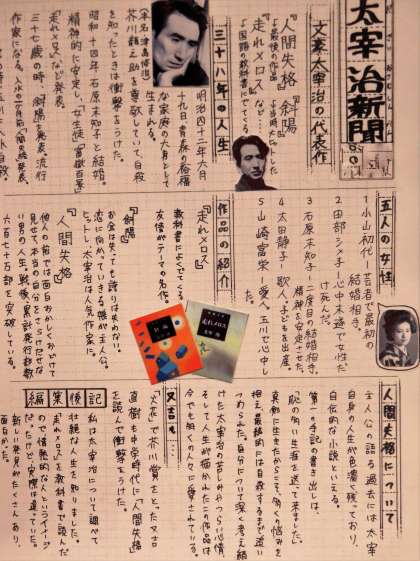 太宰治新聞
文豪太宰治の代表作
『人間失格』『斜陽』
『走れメロス』など…
三十八年の人生
明治四十二年六月
十九日、青森の裕福
な家庭の六男として
生まれる。
芥川龍之介を尊敬していて自殺
を知ったときは衝撃をうけた。
昭和十四年、石原美知子と結婚。
精神的に安定し、「女生徒」「富嶽百景」
「走れメロス」など発表。
三十七歳の時、斜陽を発表、流行
作家になる。
五人の女性
1 小山初代…芸者で最初の
結婚相手。
2 田部シメ子…心中未遂で女性だ
け死んだ。
3 石原美知子…二度目の結婚相手。
精神を安定させた。
4 太田静子…歌人。子どもを出産。
5 山崎富栄…愛人。玉川で心中し
作品の紹介
『走れメロス』
教科書によくでてくる。
友情がテーマの名作。
『斜陽』
お金は失っても誇りは失わない。
恋に向かっていきる娘が主人公。
ヒットし、太宰治は人気作家に。
『人間失格』
他人の前では面白おかしくおどけて
見せて、本当の自分をさらけだせな
い男の人生。戦後、累計発行部数
六百七十万部を突破している。
人間失格について
主人公の語る過去には太宰
自身の人生が色濃く残っており、
自伝的な小説といえる。
第一の手記の書き出しは、
「恥の多い生涯を送って来ました。」
真剣に生きたからこそ、多くの悩みを
抱え、最終的には自殺するまで追い
つめられた。自分について深く考え続
けた太宰治の苦しみやつらい心情、
そして人生が描かれたこの作品は
今でも多くの人々に愛されている。
又吉も…
「火花」で芥川賞をとった又吉
直樹も中学時代に「人間失格」
を読んで衝撃をうけた。
編集後記
私は太宰治について調べて
壮絶な人生を知りました。
走れメロスを教科書で読んだ
だったけど、実際は違っていた。
新しい発見がたくさんあり、
面白かった。